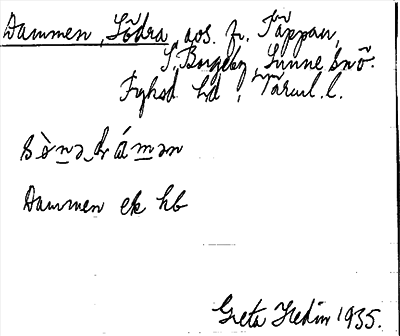 Dammen, Södra, aos. fr. Täppan,
S. Bergeby, Sunne snö.
Fryksd hd, Värml. l.
sònə drámən
Dammen ek hb
Greta Hedin 1935.